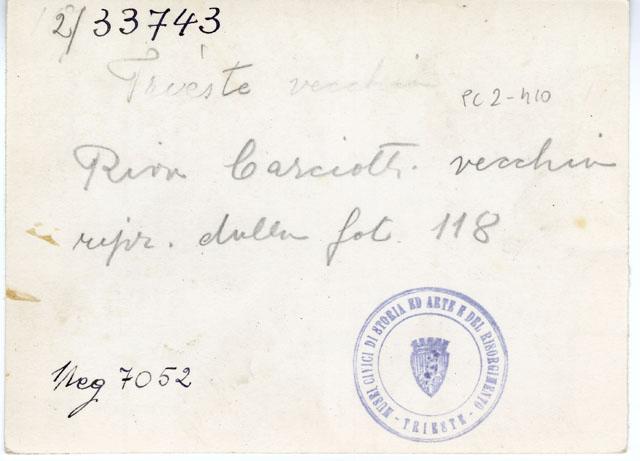 2/33743
Trieste vecchia
PC 2-410
Riva Carciotti vecchia
ripr. dalla fot. 118
MUSEI CIVICI DI STORIA ED ARTE E DEL RISORGIMENTO
- TRIESTE -
Neg 7052